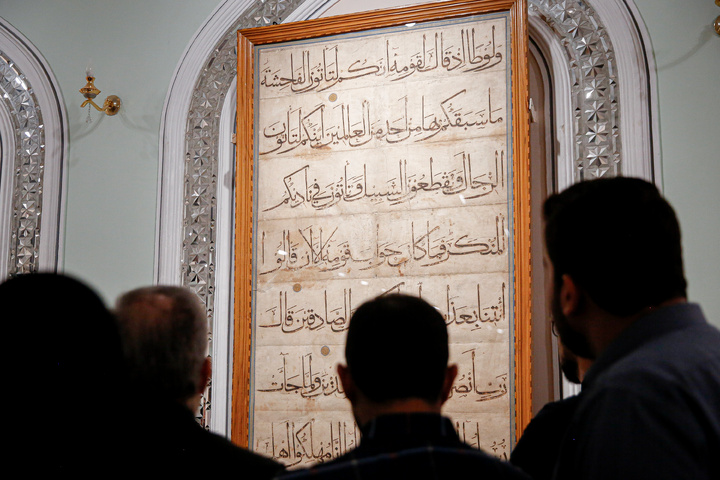 ولوطا اذ قال لقومه انكم لتاتون الفاحشة
ما سبقكم بها من احد من العالمين ائنكم لتاتون
الرجال وتقطعون السبيل وتاتون في ناديكم
المنكر فما كان جواب قومه الا ان قالوا
ائتنا بعذا الصادقين قال
رب انصر دين ولما جات
انا مهلكوا اهل